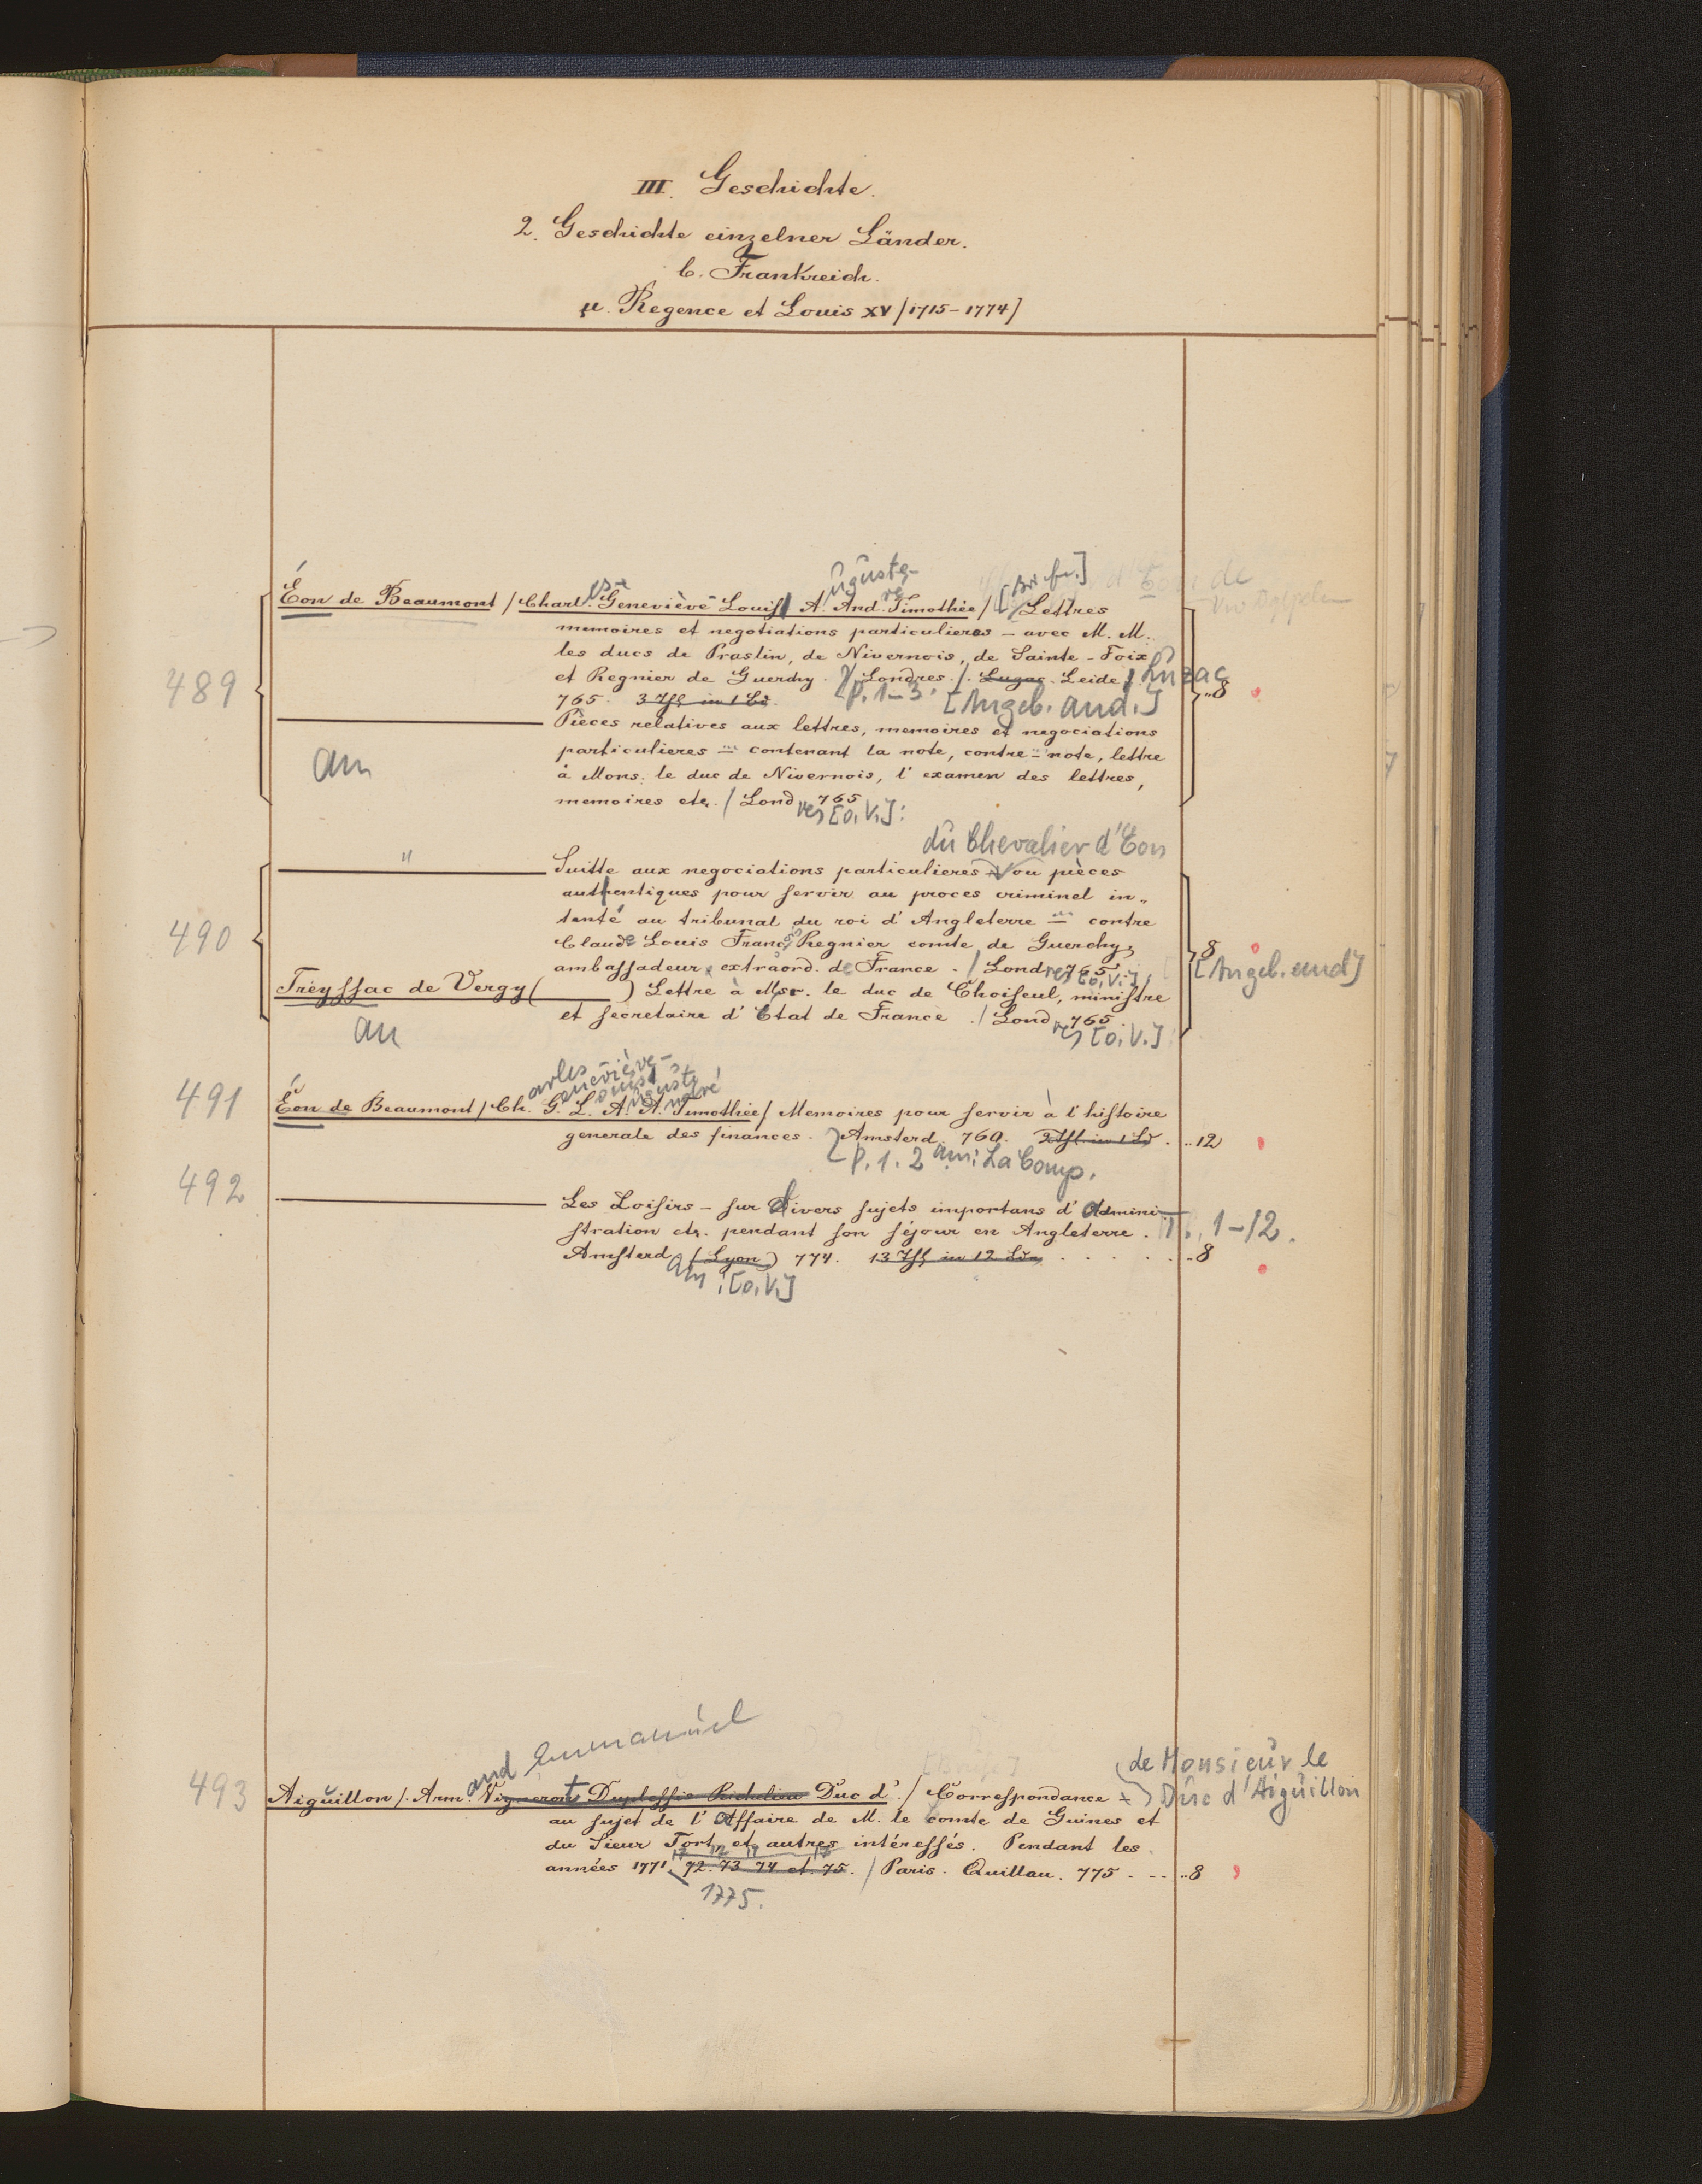 III. Geschichte.
2. Geschichte einzelner Länder.
b. Frankreich.
µ. Regence et Louis XV [1715-1774]
uguste- [Briefw.]
Éon de Beaumont / Charles- Geneviève- Louis A. And.ré Timothée / Lettres
memoires et negotiations particulieres - avec M. M.
les ducs de Praslin, de Nivernois, de Sainte-Foix
489 et Regnier de Guerchy. Londres. /. Luzac. Leide, Luzac
765. 3 Thl in 1 Bd. P. 1-3. [Angeb. and.] ..8
Pièces relatives aux lettres, memoires et negociations
particulieres - contenant la note, contre-note, lettre
an à Mons. le duc de Nivernois, l'examen des lettres,
memoires etc. / Lond 765
res [o. V.]:
du Chevalier d'Eon
" Suitte aux negociations particulieres ou pièces
authentiques pour servir au proces criminel in-
tenté au tribunal du roi d'Angleterre - contre
490 Claude Louis Franç Regnier comte de Guerchy,
ambassadeur extraord. de France. / Londres 765. [o. V.] 8
[Angeb. and]
Treyssac de Vergy ( ) Lettre à Msr. le duc de Choiseul, ministre
et secretaire d'Etat de France. / Lond 765.
an res [o. V.]
arles eneviève- ouis uguste ndré
491 Éon de Beaumont / Ch. G. L. A. A. Timothée / Memoires pour servir à l'histoire
generale des finances. Amsterd. 760. 2 Thl in 1 Bd. ..12
P. 1. 2 am: La Comp.
492 Les Loisirs - sur divers sujets importans d'admini-
stration etc. pendant son séjour en Angleterre. T. 1-12.
Amsterd (Lyon) 774. 13 Thl in 12 Bdn ..8
am: [o. V.]
and Emmanuel
de Monsieur le
493 Aiguillon /. Arm. Vignerot Duplessis Richelieu Duc d'. / Correspondance Duc d'Aiguillon
au sujet de l'Affaire de M. le comte de Guines et
du Sieur Tort et autres intéressés. Pendant les
17 17 17 17
années 1771. 72. 73 74 et 75. / Paris. Quillau. 775 ..8
1775.